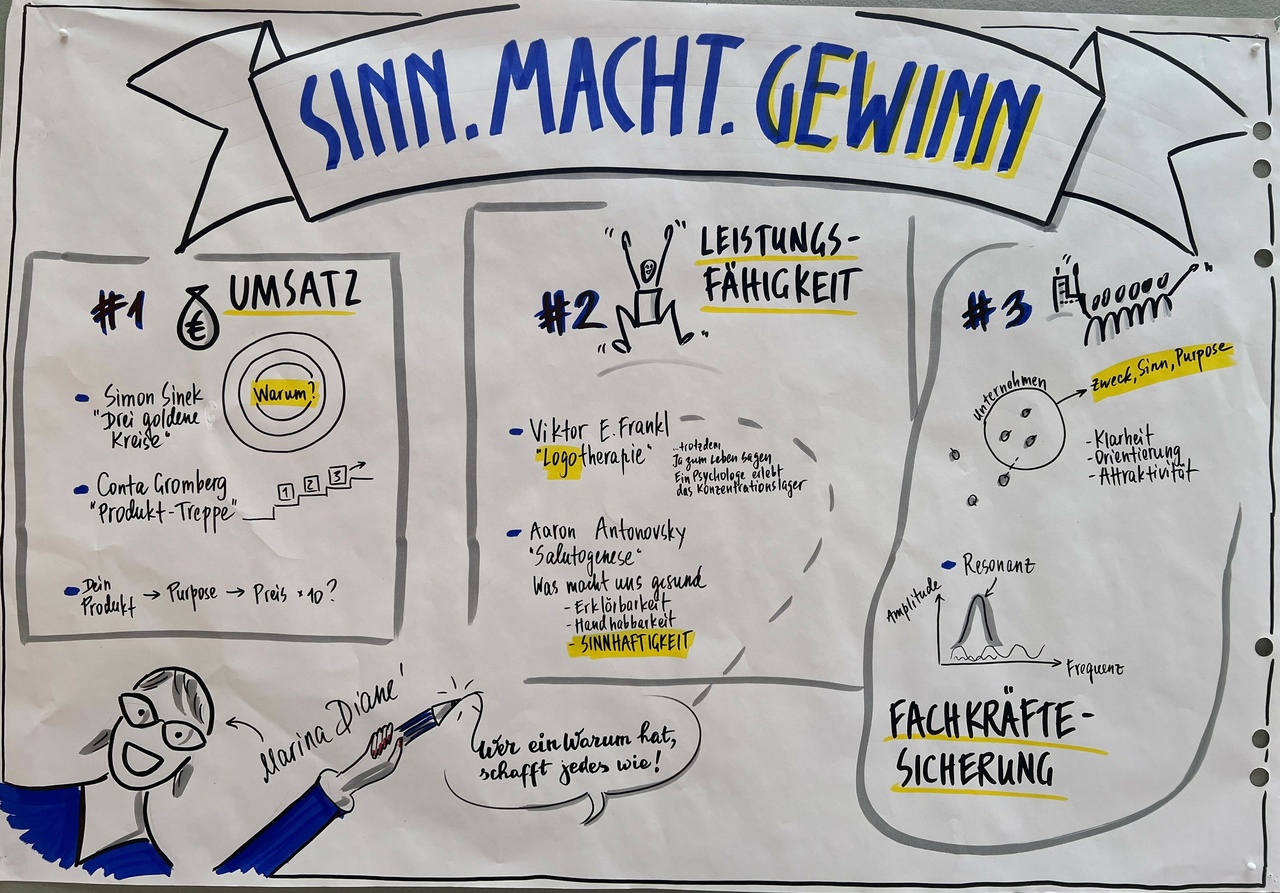 SINN. MACHT. GEWINN
#1
€
UMSATZ
Warum?
Simon Sinek
"Drei goldene
Kreise"
Conta Gromberg
"Produkt-Treppe"
1 2 3
Dein
Produkt → Purpose → Preis × 10?
#2
LEISTUNGS-
FÄHIGKEIT
Viktor E. Frankl
"Logotherapie"
...trotzdem
Ja zum Leben sagen
Ein Psychologe erlebt
das Konzentrationslager
Aaron Antonovsky
"Salutogenese"
Was macht uns gesund
- Erklärbarkeit
- Handhabbarkeit
- SINNHAFTIGKEIT
#3
Unternehmen
Zweck, Sinn, Purpose
- Klarheit
- Orientierung
- Attraktivität
Resonanz
Amplitude
Frequenz
FACHKRÄFTE-
SICHERUNG
Marina Diané
Wer ein Warum hat,
schafft jedes wie!